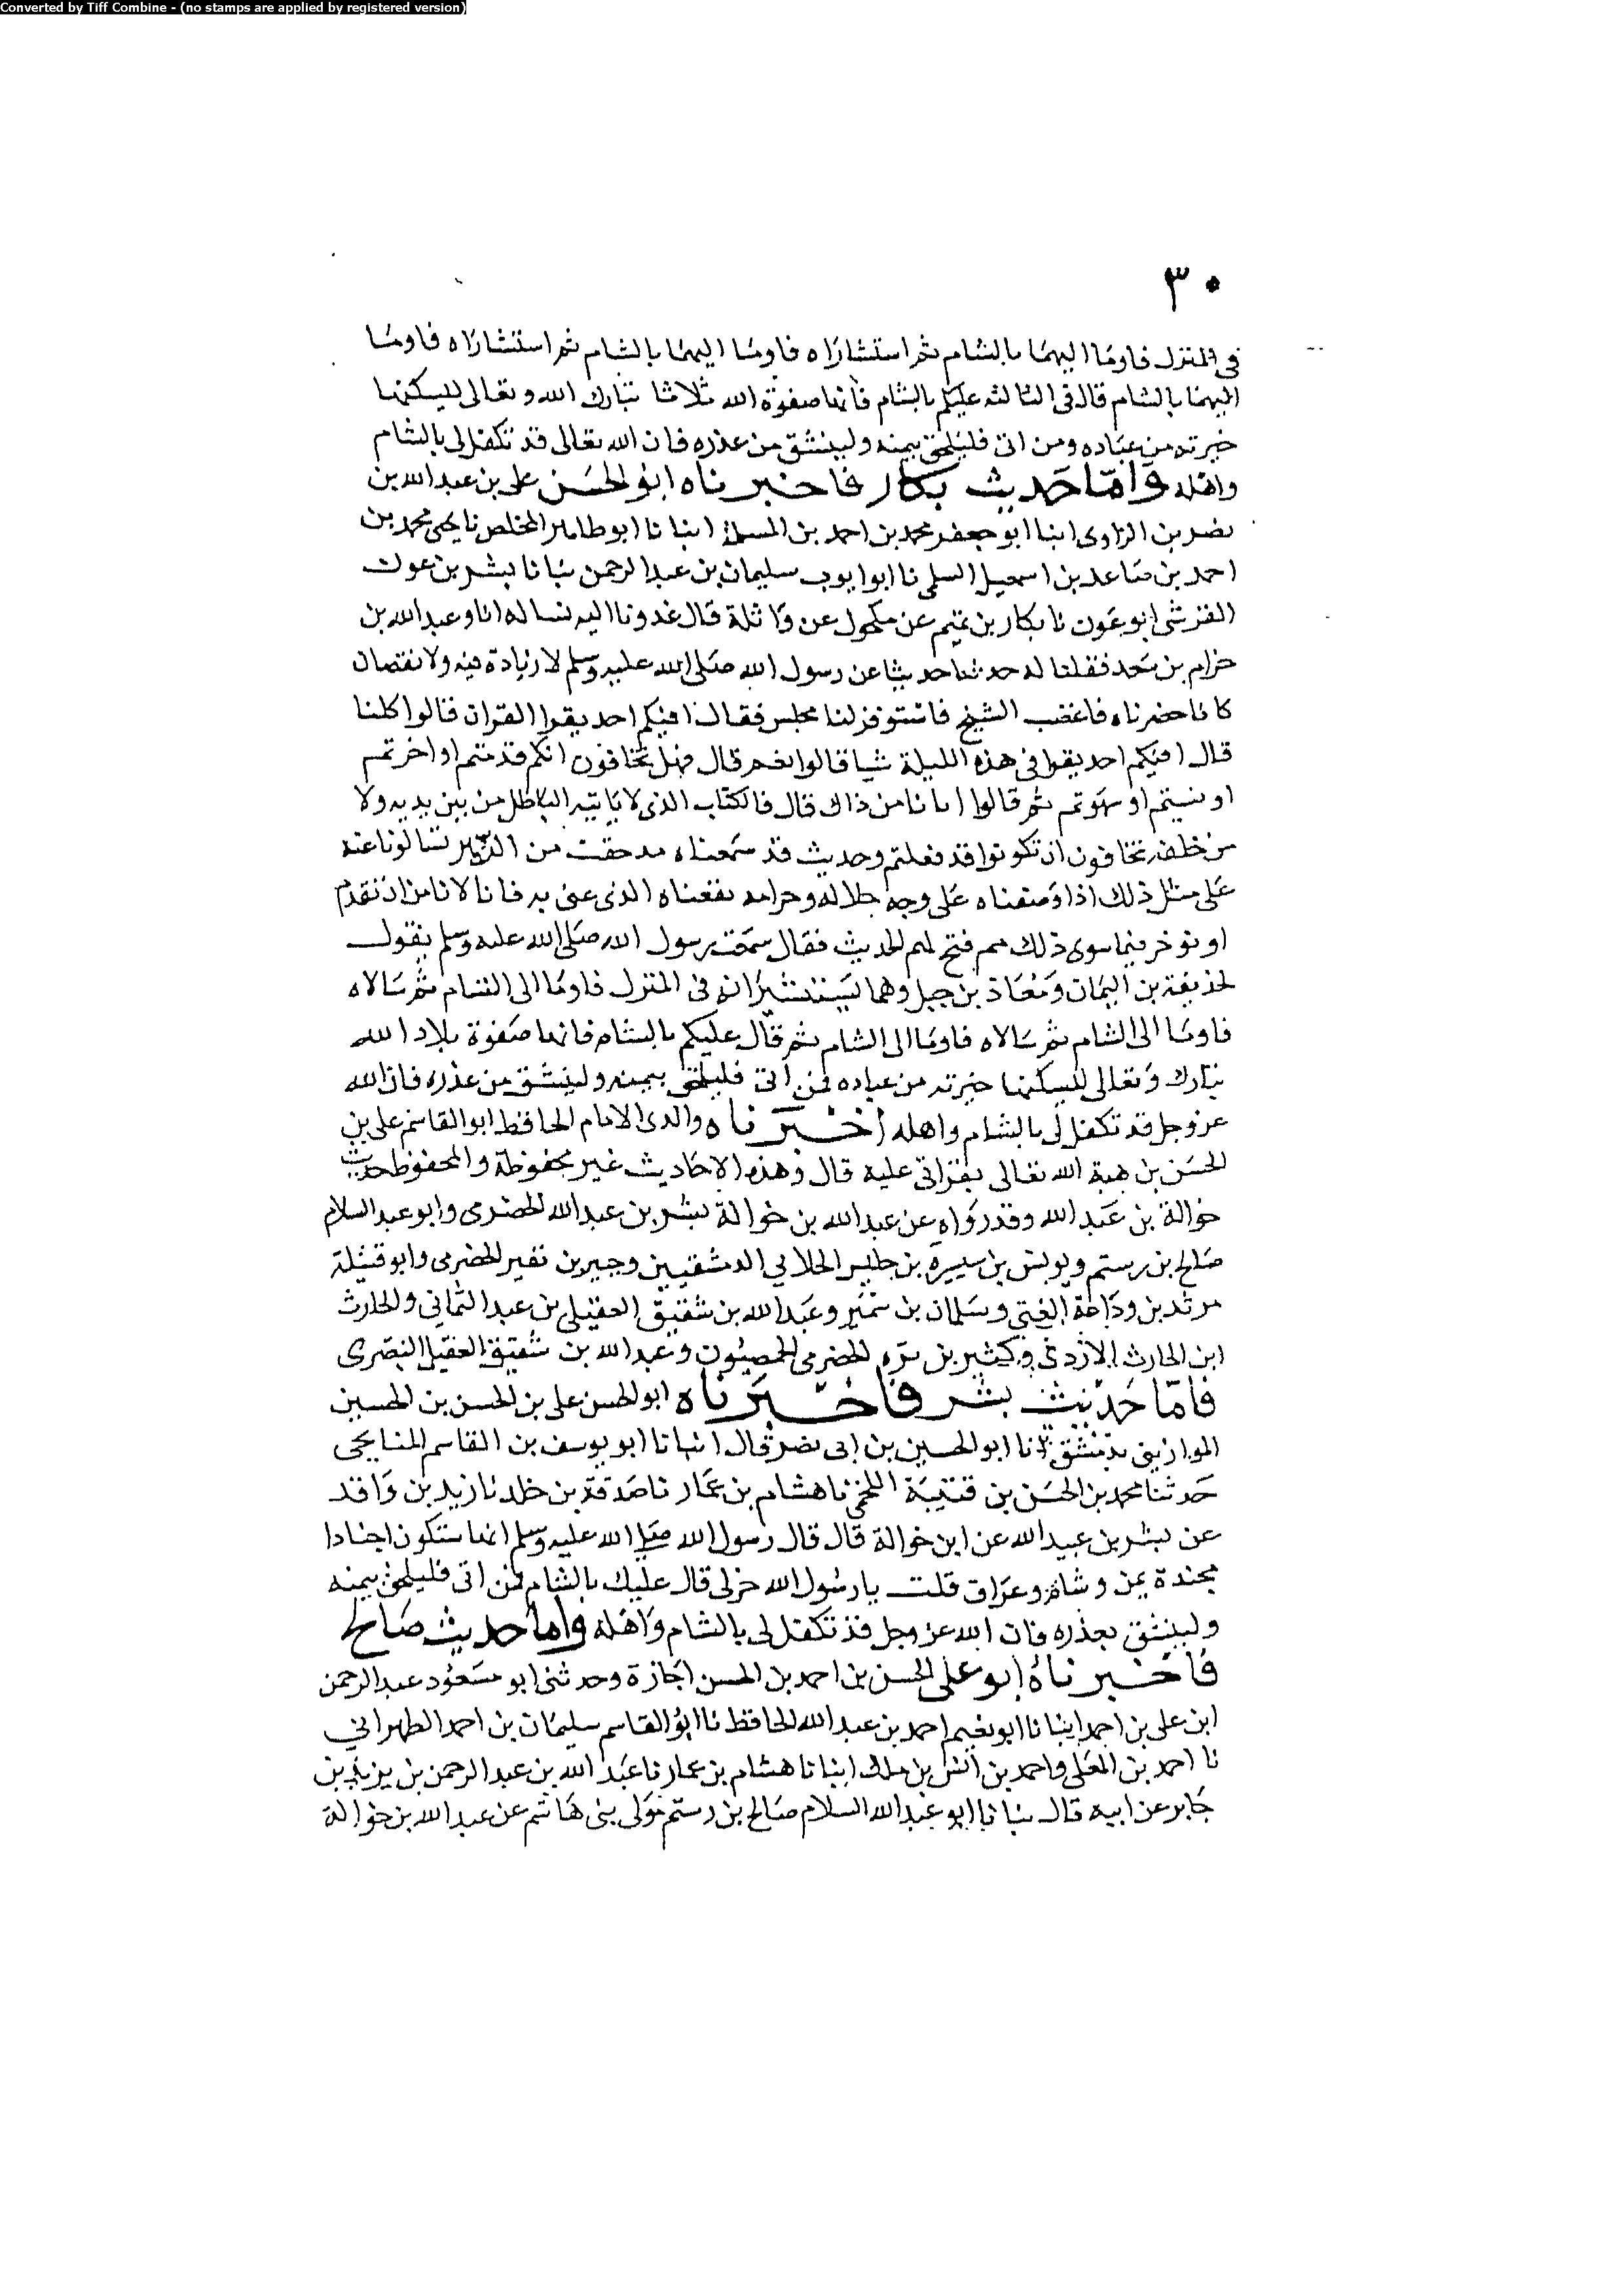 Converted by Tiff Combine - (no stamps are applied by registered version)
٣٠
فى المنزل فاومَا اليهمَا بالشام ثم استشاراه فاومَا اليهمَا بالشام ثم استشاراه فاومَا
اليهمَا بالشام قال فى الثالثه عليكم بالشام فانها صفوة الله ثلاثا تبارك الله وتعالى لليسكنها
خيرته من عباده ومن اتى فليلحق بيمنه وليسشق من عذره فان الله تعالى قد تكفل لى بالشام
واهله وَامّا حَديث بكار فاخبرناه ابو الحسَن على بن عبد الله بن
نصر بن الزاوى ابنا ابو جعفر محمد بن احمد بن المسلمة انبانا ابو طاهر المخلص نا يحيى محمد بن
احمد بن صَاعد بن اسمعيل السلمى نا ابو ايوب سليمان بن عبد الرحمن نبانا بشر بن عون
القرشى ابو عَون نا بكار بن تميم عن مكحول عن وَاثلة قال غدونا اليه نساله انا وعبد الله بن
حزام بن سَعد فقلنا له حدثنا حديثا عن رسول الله صَلى الله عليه وسلم لا زيادة فيه ولا نقصان
كانا حضرناه فاغضب الشيخ فاستوفز لنا مجلس فقال افيكم احد يقرا القران قالوا كلنا
قال افيكم احد يقرا فى هذه الليلة شيا قالوا نعم قال فهل تخافون انكم قدمتم او اخرتم
او نسيتم او سهوتم ثم قالوا امانا من ذاك قال فالكتاب الذى لا يَاتيه الباطل من بين يديه ولا
من خلفه تخافون ان تكونوا قد فعلتم وحديث قد سَمعناه من تسَالونا عنه
عَلى مثل ذلك اذا وَصفناه عَلى وجه حلاله وحرامه نفعناه الذى عنى به فانا لا نامن ان نقدم
او نوخر فيما سوى ذلك ثم فتح لهم الحديث فقال سَمعت رسول الله صَلى الله عليه وسلم يقول
لحذيفة بن اليمَان وَمعَاذ بن جبل وهما يَستشيرَانه فى المنزل فاومَا الى الشام ثم سَالاه
فاومَا الى الشام ثم سَالاه فاومَا الى الشام ثم قال عليكم بالشام فانها صَفوة بلاد الله
تبارك وَتعالى لليسكنها خيرته من عباده فمن اتى فليلحق بيمنه وليسشق من عذره فان الله
عز وجل قد تكفل لى بالشام واهله اخبَرناه والدى الامام الحافظ ابو القاسم على بن
الحسَن بن هبة الله تعالى بقراتى عليه قال وَهذه الاحَاديث غير محفوظة والمحفوظ حديث
حوالة بن عَبد الله وقد رَواه عن عبد الله بن خوالة بشر بن عبد الله الحضرمى وابو عبد السلام
صَالح بن رستم ويونس بن ميسرة بن حلبس الحلابي الدمشقيين وجبير بن نفير الحضرمى وابو قتيلة
مرثد بن ودَاعَة العني وسَلمان بن سُمَير وعَبد الله بن شقيق العقيلى بن عبد الثمانى والحارث
ابن الحارث الازدى وكثير بن مره الحضرمى الحمصيون وعَبد الله بن شقيق العقيلى البَصرى
فامّا حَدْيث بشر فاخبَرناه ابو الحسن على بن الحسن بن الحسين
الموازينى بدمشق انا ابو الحسين بن ابى نصر قال انبانا ابو يوسف بن القاسم الميانجى
حَدثنا محمد بن الحسَن بن قتيبَة اللخمى نا هشام بن عمَار نا صَدقة بن خالد نا زيد بن وَاقد
عن بشر بن عبيد الله عن ابن خوالة قال قال رسول الله صَلى الله عليه وسلم انها ستكون اجنادا
مجندة يمن وشام وعرَاق قلت يا رسُول الله خر لى قال عليك بالشام فمن اتى فليلحق بيمنه
وليسشق بعذره فان الله عز وجل قد تكفل لى بالشام وَاهله وامَا حديث صَالح
فاخبرناهُ ابو على الحسن بن احمد بن الحسن اجَازة وحدثنى ابو مسَعود عبد الرحمن
ابن على بن احمد ابنانا ابو نعيم احمد بن عبد الله الحافظ نا ابو القاسم سليمَان بن احمد الطبراني
نا احمد بن المعَلى واحمد بن انس بن ملك ابنانا هشام بن عمار نا عَبد الله بن عبد الرحمن بن يزيد بن
جَابر عن ابيه قال نبانا ابو عَبد الله السلام صَالح بن رستم مَولى بنى هَاشم عن عبد الله بن خوالة